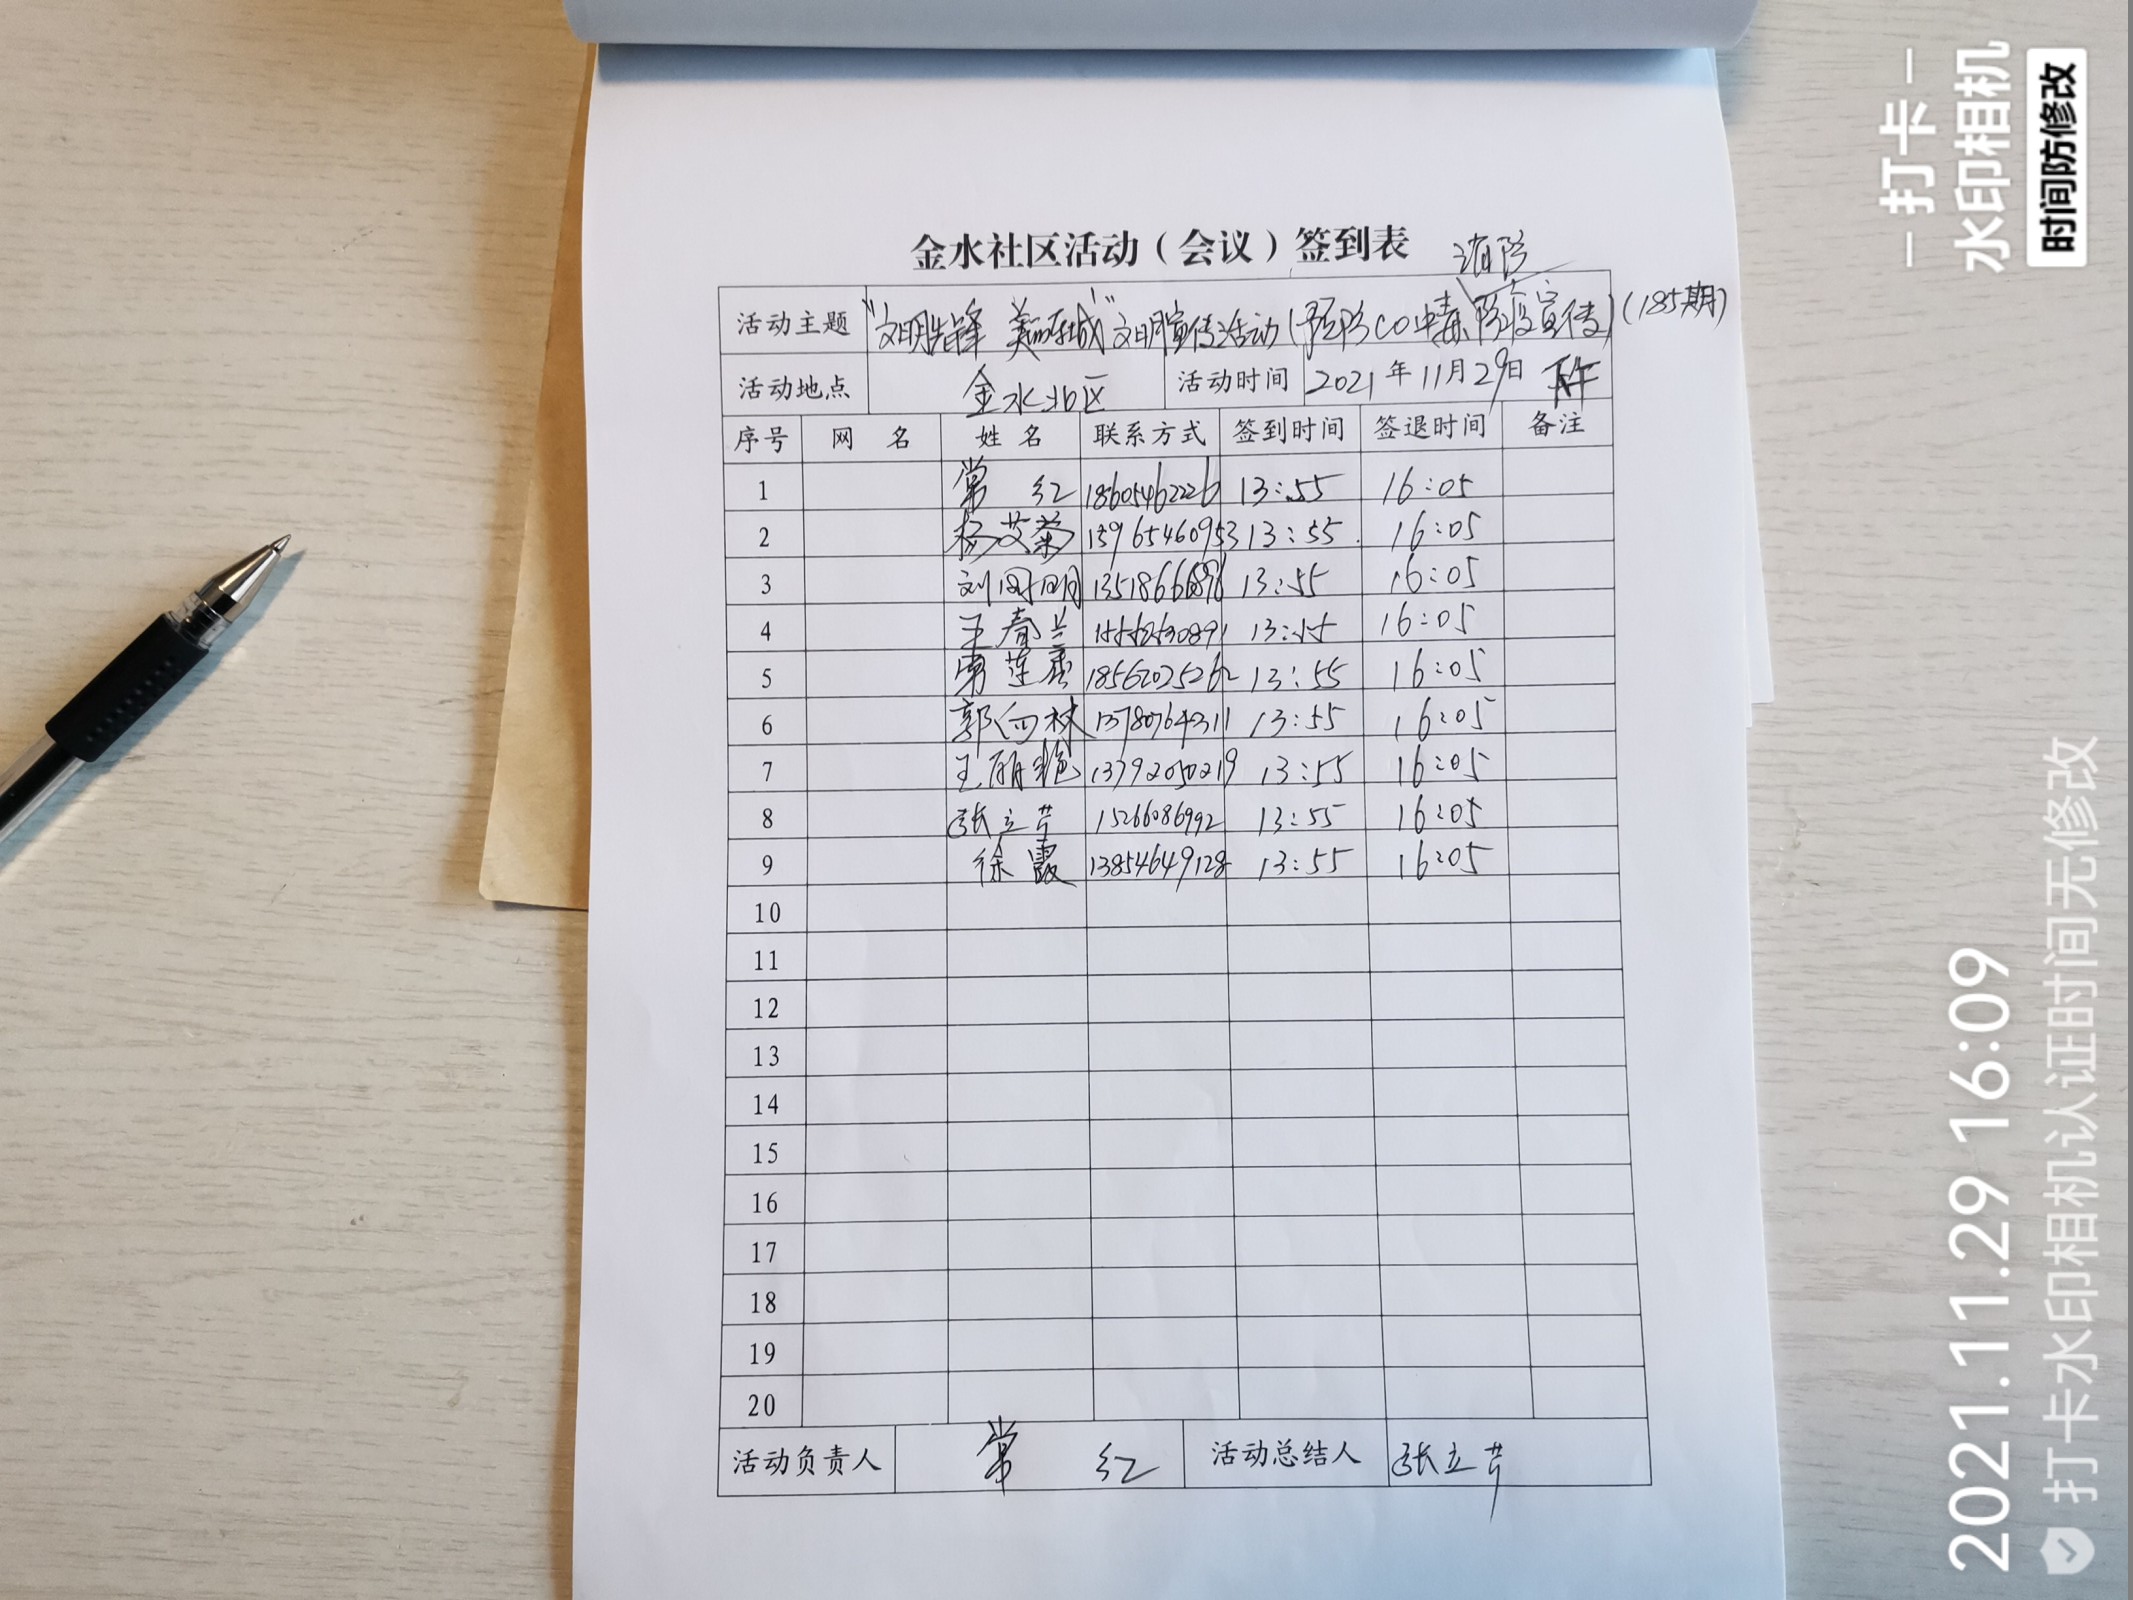 金水社区活动（会议）签到表
消防
活动主题 "文明先锋 美丽东城"文明宣传活动(预防CO中毒、防疫宣传)(185期)
活动地点 金水北区 活动时间 2021年11月29日 下午
序号 网 名 姓 名 联系方式 签到时间 签退时间 备注
1 常 红 18605462226 13:55 16:05
2 杨艾菊 15965460953 13:55 16:05
3 刘 13:55 16:05
4 王春兰 13:55 16:05
5 常莲香 18562025262 13:55 16:05
6 郭向林 13780764311 13:55 16:05
7 王丽艳 13792050219 13:55 16:05
8 张立芹 15266086992 13:55 16:05
9 徐霞 13854649128 13:55 16:05
10
11
12
13
14
15
16
17
18
19
20
活动负责人 常 红 活动总结人 张立芹
打卡
水印相机
时间防修改
2021.11.29 16:09
打卡水印相机认证时间无修改